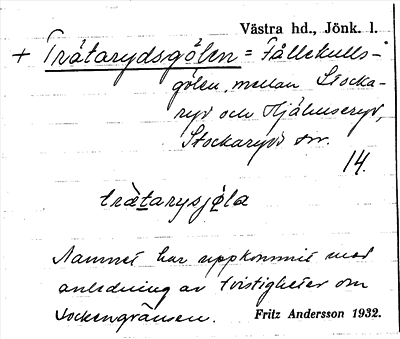 Västra hd., Jönk. l.
+ Trätarydsgölen = Fällekulls-
gölen, mellan Stocka-
ryd och Hjälmseryd,
Stockaryds sn.
14.
trätarysjø̨la
Namnet har uppkommit med
anledning av tvistigheter om
sockengränsen. Fritz Andersson 1932.